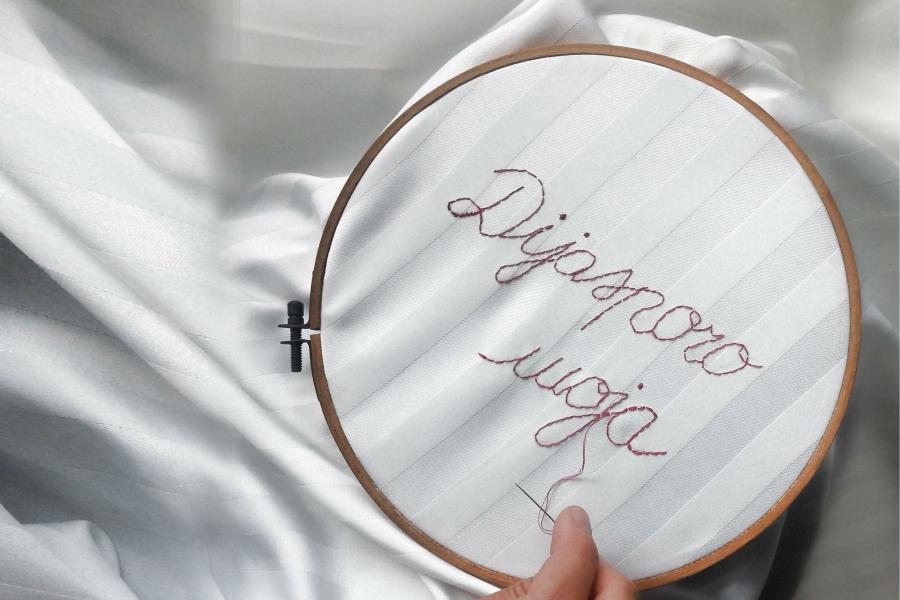 Dijasporo
moja